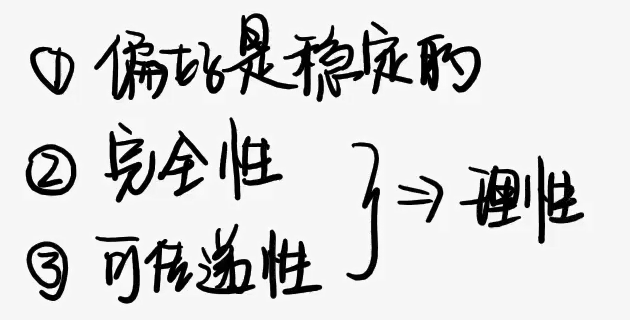 ① 偏好是稳定的
② 完全性
③ 可传递性
} ⇒ 理性